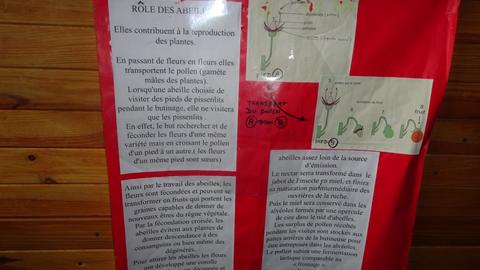 RÔLE DES ABEILLES
Elles contribuent à la reproduction
des plantes.
En passant de fleurs en fleurs elles
transportent le pollen (gamète
mâles des plantes).
Lorsqu'une abeille choisie de
visiter des pieds de pissenlits
pendant le butinage, elle ne visitera
que les pissenlits .
En effet, le but rechercher et de
féconder les fleurs d'une même
variété mais en croisant le pollen
d'un pied à un autre.( les fleurs
d'un même pied sont sœurs)
Ainsi par le travail des abeilles, les
fleurs sont fécondées et peuvent se
transformer en fruits qui portent les
graines capables de donner de
nouveaux êtres du règne végétale.
Par la fécondation croisée, les
abeilles évitent aux plantes de
donner descendance à des
consanguins ou bien même des
dégénérés.
Pour attirer les abeilles les fleurs
ont développé une corolle
PIED A
TRANSPORT
DU POLLEN
A B
PIED B
8
fruit
abeilles assez loin de la source
d'émission.
Le nectar sera transformé dans le
jabot de l'insecte pu miel, et finira
sa maturation par intermédiaire des
ouvrières de la ruche.
Puis le miel sera conservé dans les
alvéoles fermés par une opercule
de cire dans le nid d'abeilles.
Les surplus de pollen récoltés
pendant les visites sont stockés aux
pattes arrières de la butineuse pour
être entreposés dans les alvéoles.
Le pollen subira une fermentation
lactique comparable au
« fromage »